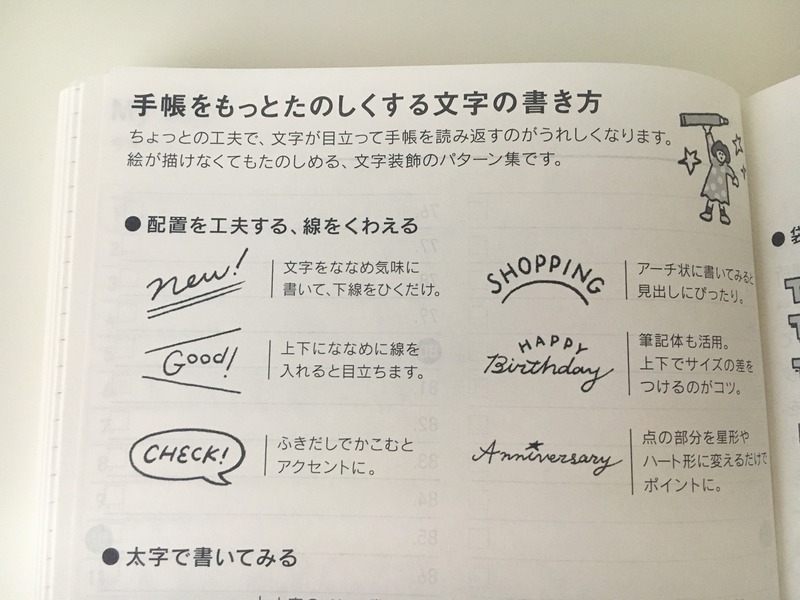 手帳をもっとたのしくする文字の書き方
ちょっとの工夫で、文字が目立って手帳を読み返すのがうれしくなります。
絵が描けなくてもたのしめる、文字装飾のパターン集です。
●配置を工夫する、線をくわえる
new!
文字をななめ気味に
書いて、下線をひくだけ。
Good!
上下にななめに線を
入れると目立ちます。
CHECK!
ふきだしでかこむと
アクセントに。
SHOPPING
アーチ状に書いてみると
見出しにぴったり。
HAPPY
Birthday
筆記体も活用。
上下でサイズの差を
つけるのがコツ。
Anniversary
点の部分を星形や
ハート形に変えるだけで
ポイントに。
●太字で書いてみる